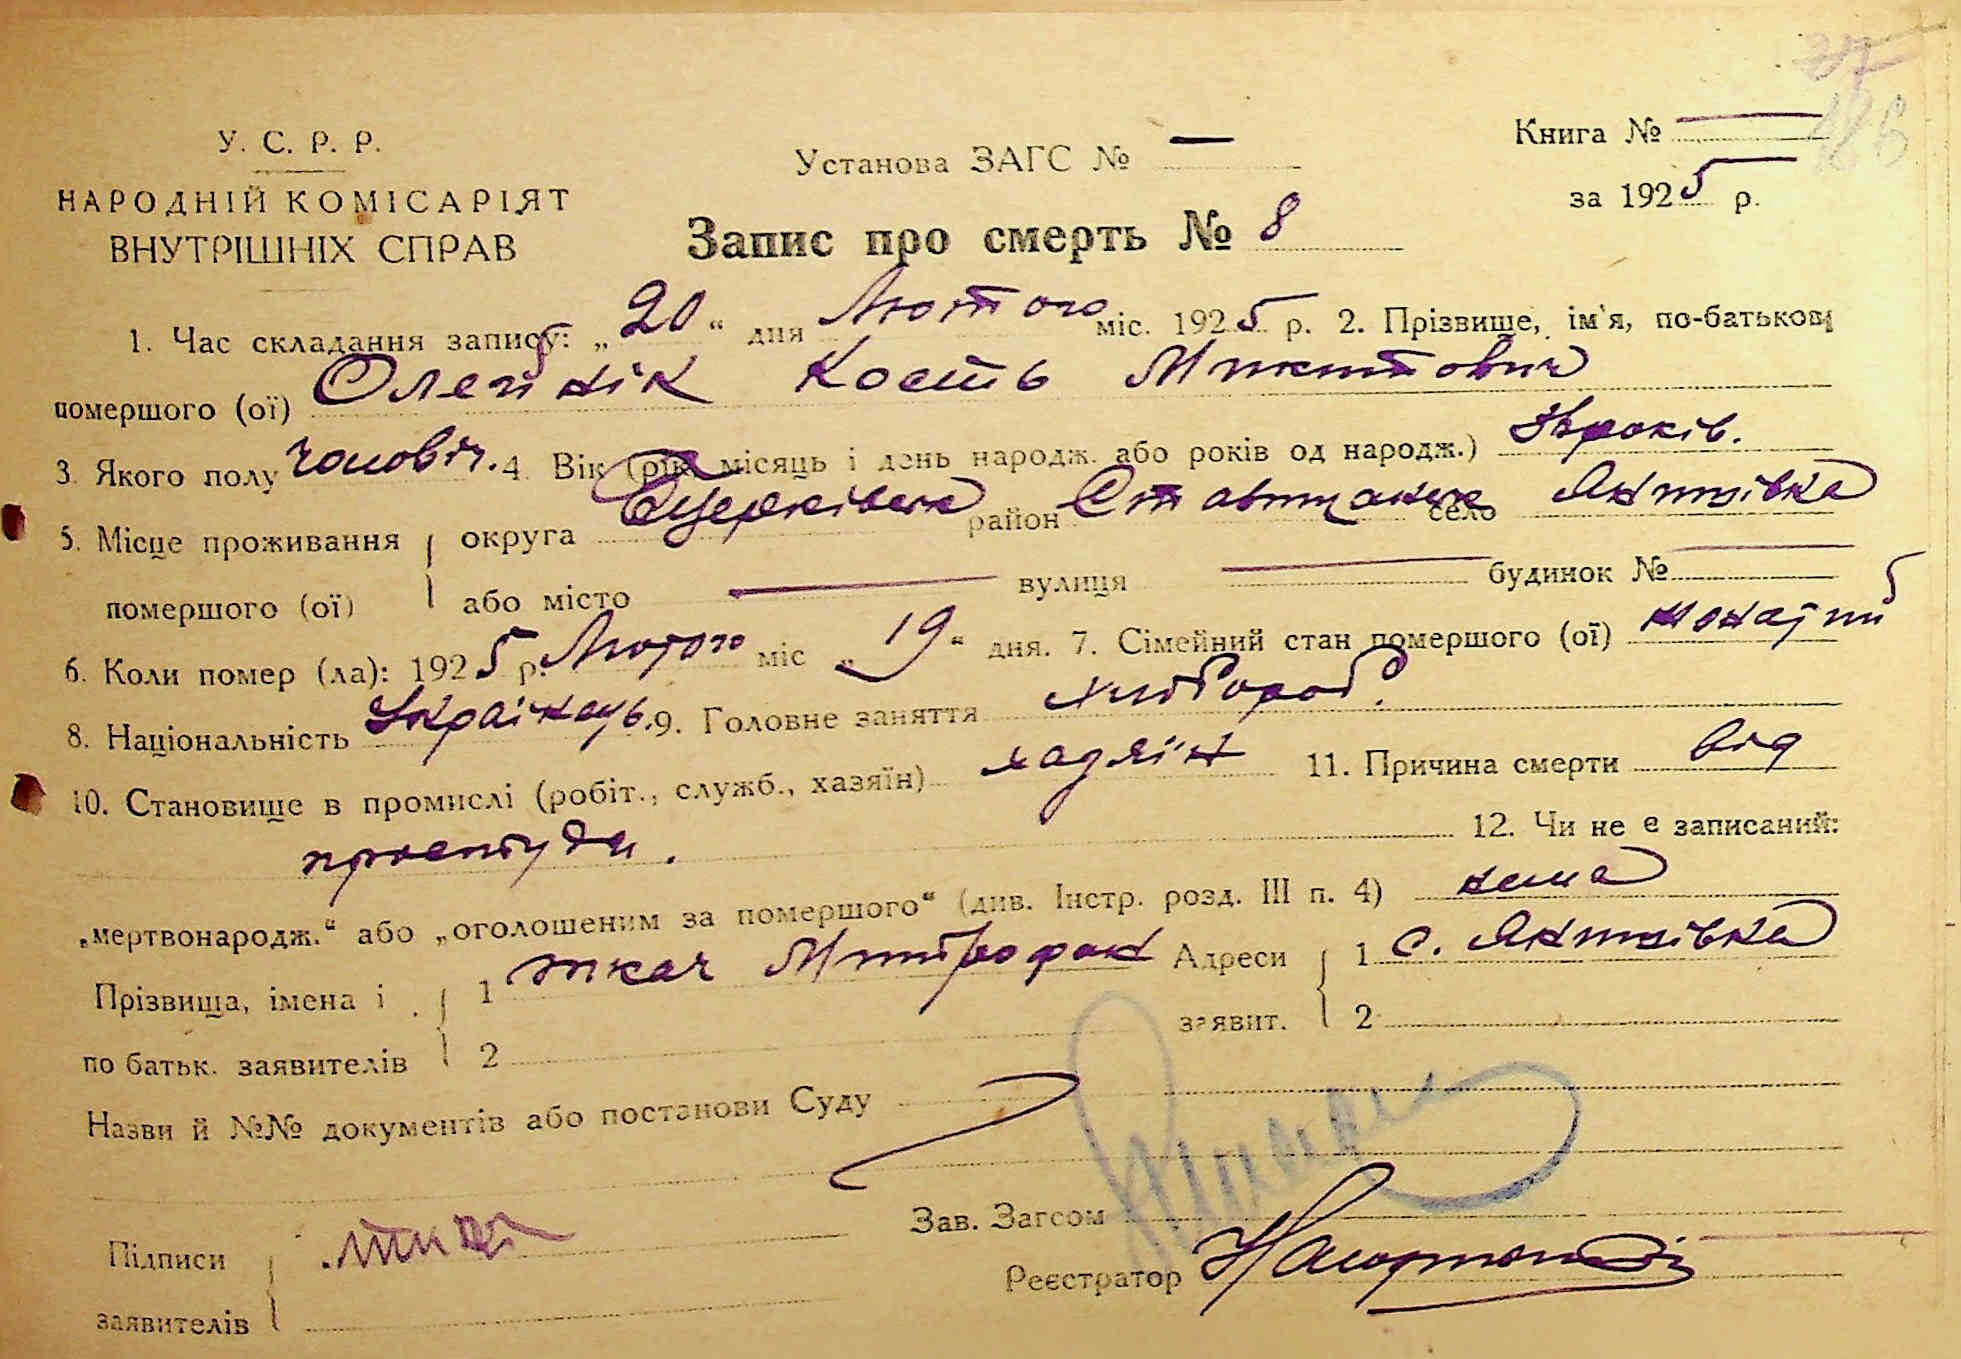 37
У. С. Р. Р.
НАРОДНІЙ КОМІСАРІЯТ
ВНУТРІШНІХ СПРАВ
Установа ЗАГС № —
Книга № —
за 1925 р.
Запис про смерть № 8
1. Час складання запису: „20“ дня Лютого міс. 1925 р. 2. Прізвище, ім'я, по-батькові
помершого (ої) Олейнік Кость Микитович
3. Якого полу чоловіч. 4. Вік (рік, місяць і день народж. або років од народж.) років.
5. Місце проживання округа Б Церківськ район Ставищанськ село Антонівка
помершого (ої) або місто — вулиця — будинок № —
6. Коли помер (ла): 1925 р. Лютого міс „19“ дня. 7. Сімейний стан помершого (ої) жонатий
8. Національність Українець. 9. Головне заняття хлібороб.
10. Становище в промислі (робіт., служб., хазяїн) хадяїн 11. Причина смерти від
простуди. 12. Чи не є записаний:
„мертвонародж.“ або „оголошеним за помершого“ (див. Інстр. розд. III п. 4) нема
Прізвища, імена і 1 Ткач Митрофан Адреси 1 с. Антонівка
по батьк. заявителів 2 заявит. 2
Назви й №№ документів або постанови Суду
Зав. Загсом
Підписи
Реєстратор
заявителів